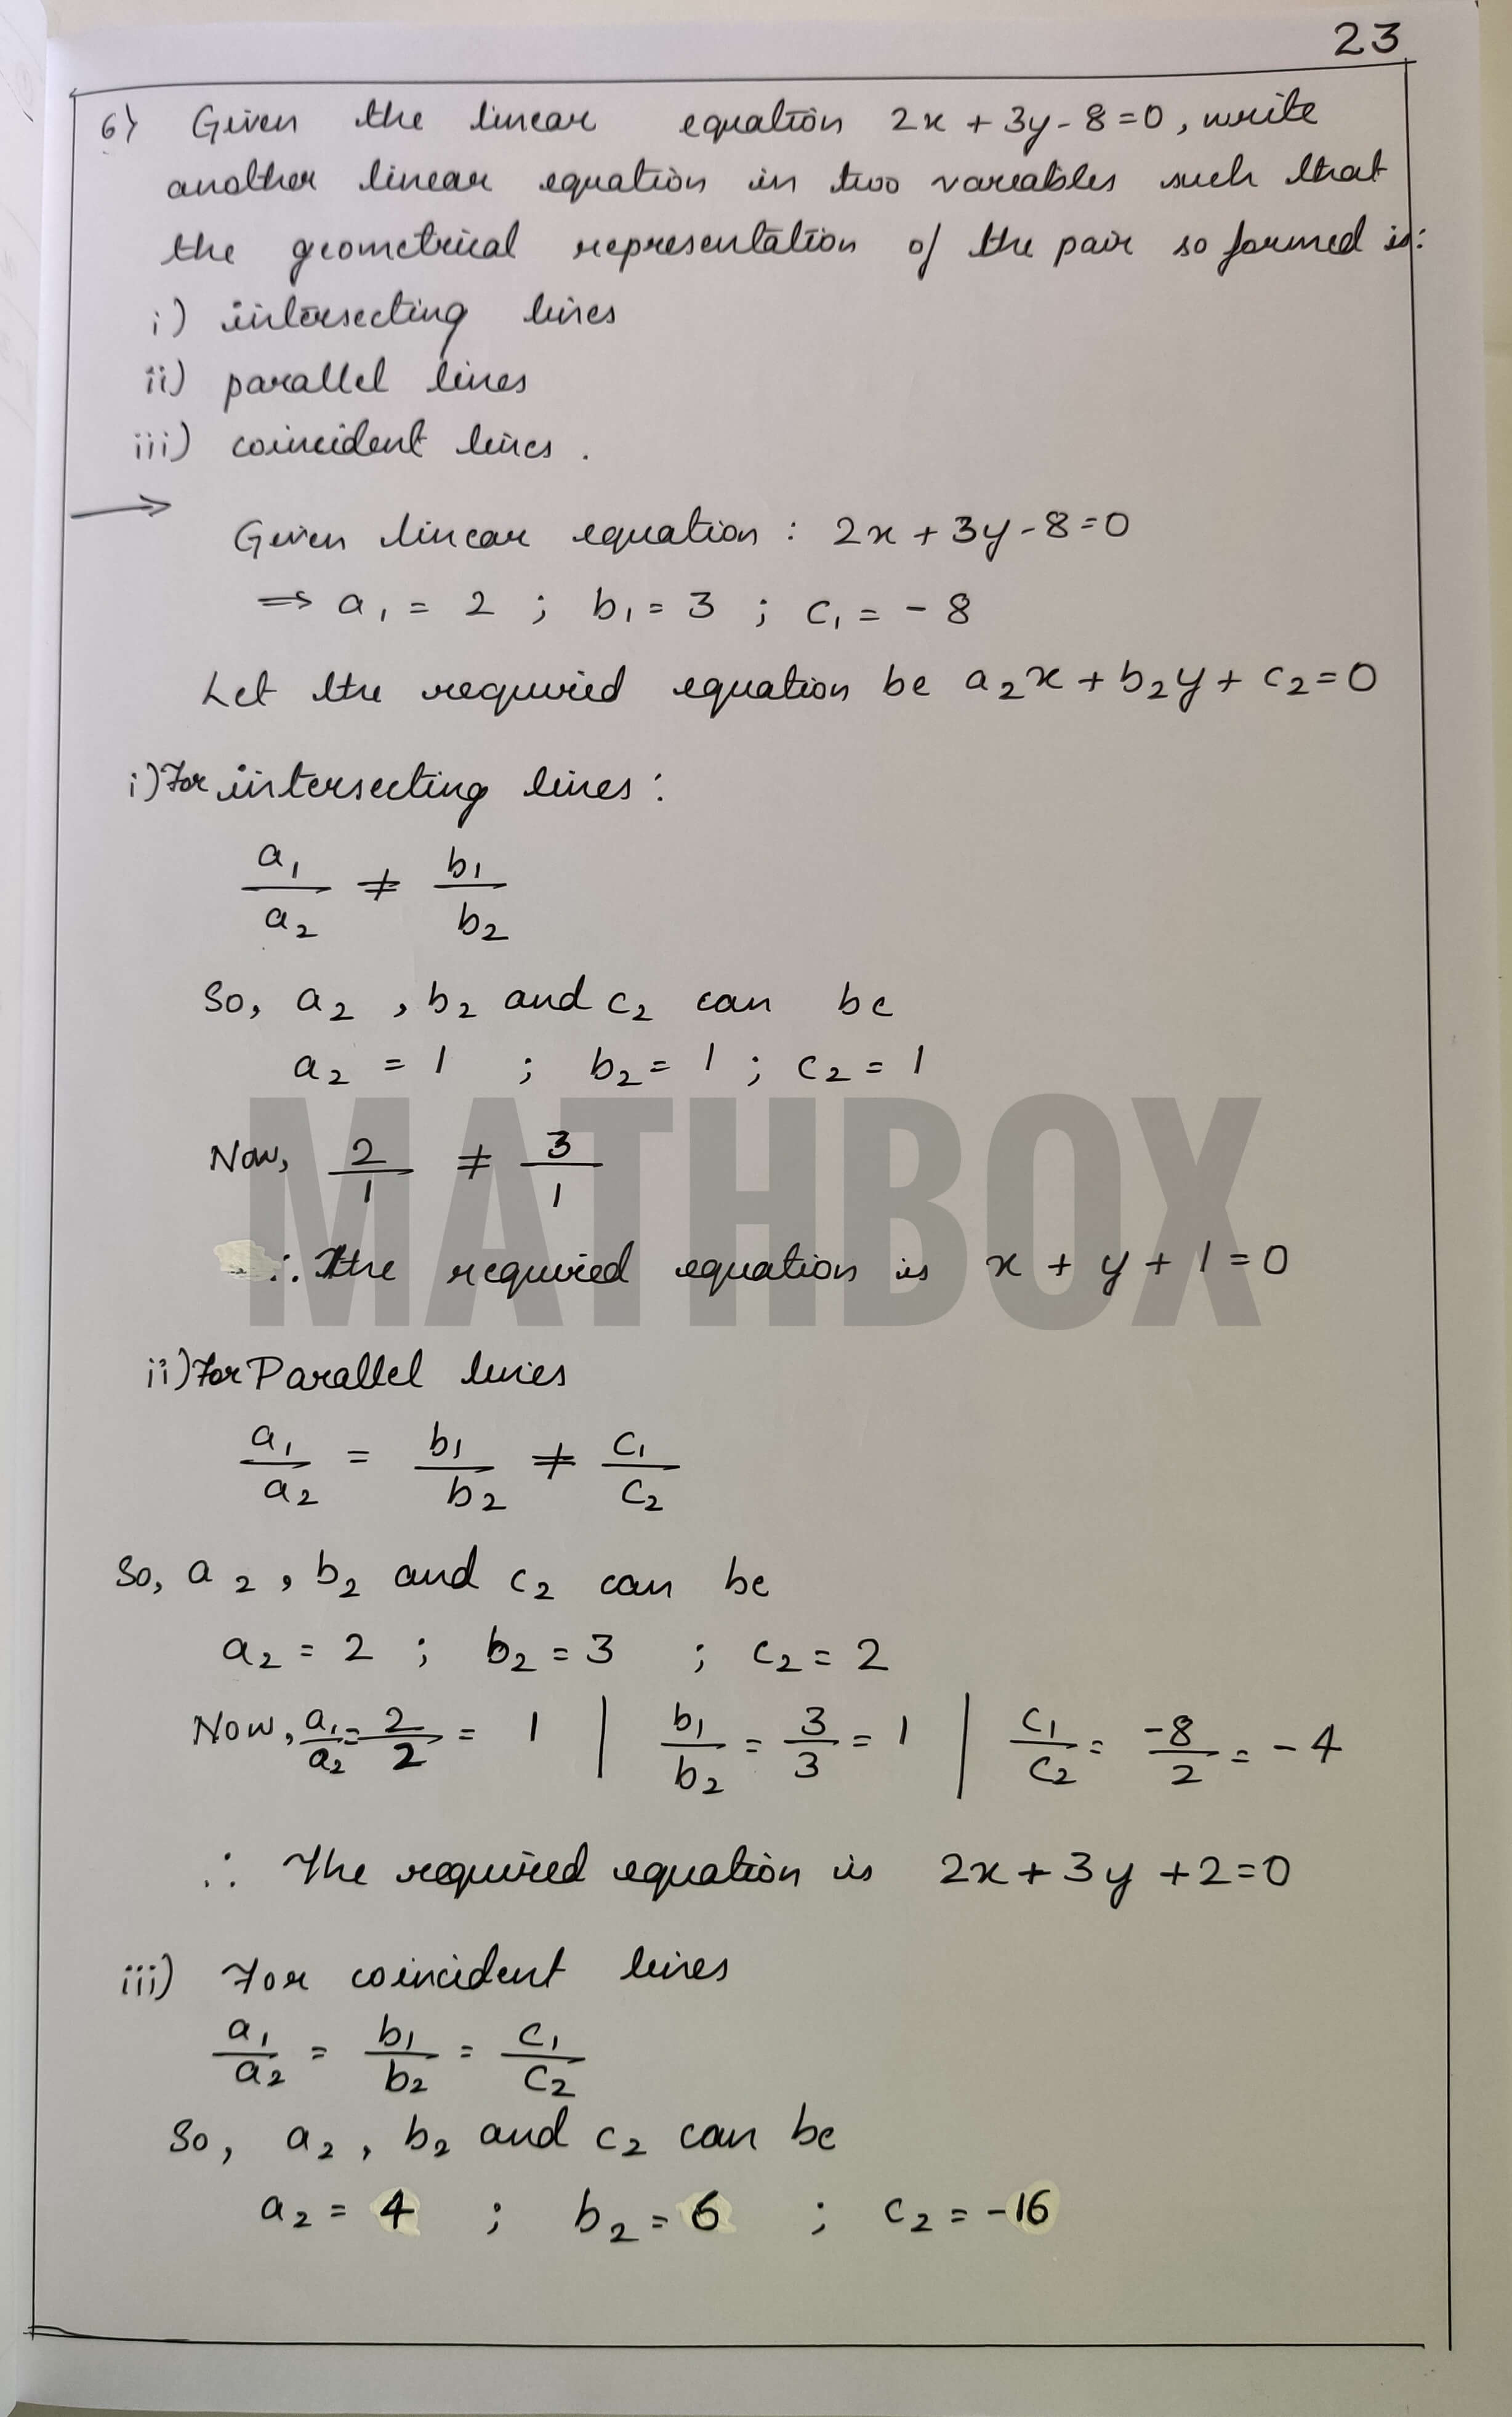 23
6) Given the linear equation 2x + 3y - 8 = 0, write
another linear equation in two variables such that
the geometrical representation of the pair so formed is:
i) intersecting lines
ii) parallel lines
iii) coincident lines.
→
Given linear equation : 2x + 3y - 8 = 0
⇒ a₁ = 2 ; b₁ = 3 ; c₁ = - 8
Let the required equation be a₂x + b₂y + c₂ = 0
i) For intersecting lines :
a₁/a₂ ≠ b₁/b₂
So, a₂, b₂ and c₂ can be
a₂ = 1 ; b₂ = 1 ; c₂ = 1
MATHBOX
Now, 2/1 ≠ 3/1
∴ The required equation is x + y + 1 = 0
ii) For Parallel lines
a₁/a₂ = b₁/b₂ ≠ c₁/c₂
So, a₂, b₂ and c₂ can be
a₂ = 2 ; b₂ = 3 ; c₂ = 2
Now, a₁/a₂ = 2/2 = 1 | b₁/b₂ = 3/3 = 1 | c₁/c₂ = -8/2 = - 4
∴ The required equation is 2x + 3y + 2 = 0
iii) For coincident lines
a₁/a₂ = b₁/b₂ = c₁/c₂
So, a₂, b₂ and c₂ can be
a₂ = 4 ; b₂ = 6 ; c₂ = -16